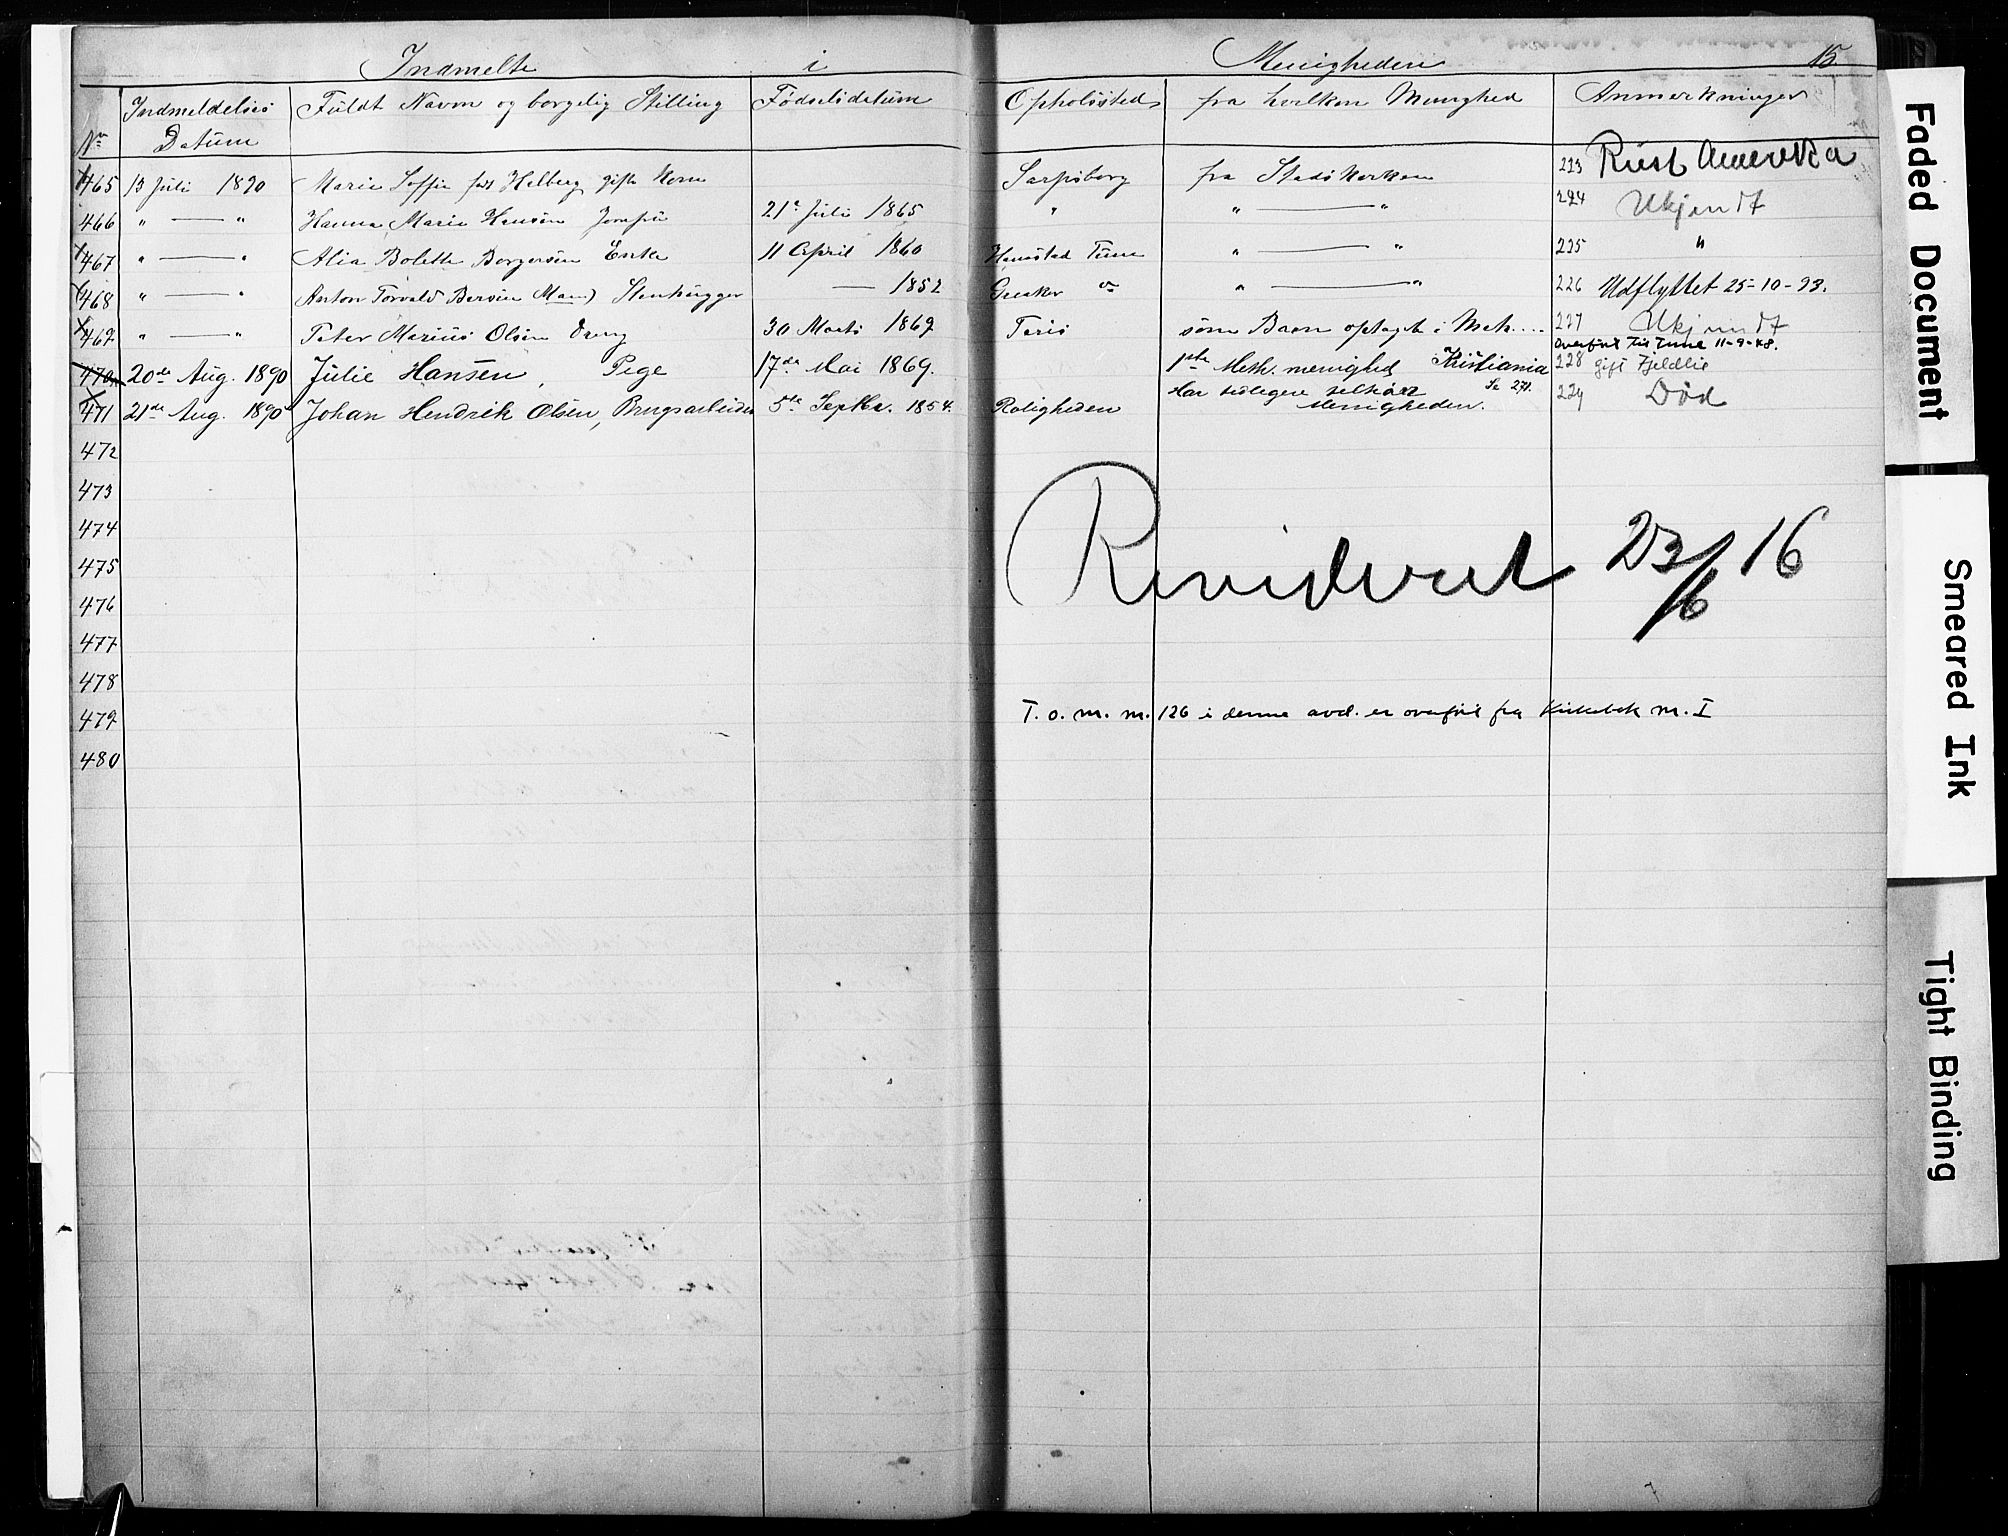 Indmelte i Menigheden 15
No Indmeldelses Datum Fuldt Navn og borgelig Stilling Fødselsdatum Opholdsted fra hvilken Menighed Anmerkninger
465 13 Juli 1890 Marie Soffie født Helberg gift Kone Sarpsborg fra Stadskerken 223 Reist Amerika
466 " — " Hanna Marie Hansen Jomfru 21de Juli 1865 " " — " 224 Ukjendt
467 " — " Alia Bolette Borgersen Enke 11 April 1860 Hanestad Tune " — " 225 "
468 " — " Anton Torvald Bersen Mand Stenhugger — 1852 Greaker " — " 226 Udflyttet 25-10-93.
469 " — " Peter Marius Olsen Dreng 30 Marts 1869 Teris som Barn optaget i Meh.... 227 Ukjendt
overført til Tune 11-9-48.
470 20de Aug. 1890 Julie Hansen, Pige 17de Mai 1869. 1ste Meth. menighed Kristiania 228 gift Fjeldlie
471 21de Aug. 1890 Johan Hendrik Olsen, Brugsarbeider 5te Septbr. 1854. Roligheden Har tidligere tilhört Menigheden. Se 271. 229 Död
472
473
474
Revideret 23/6 16
475
476
477
478
479 T. o. m. m. 126 i denne avd. er overført fra Kirkebok m. I
480
Faded Document
Smeared Ink
Tight Binding